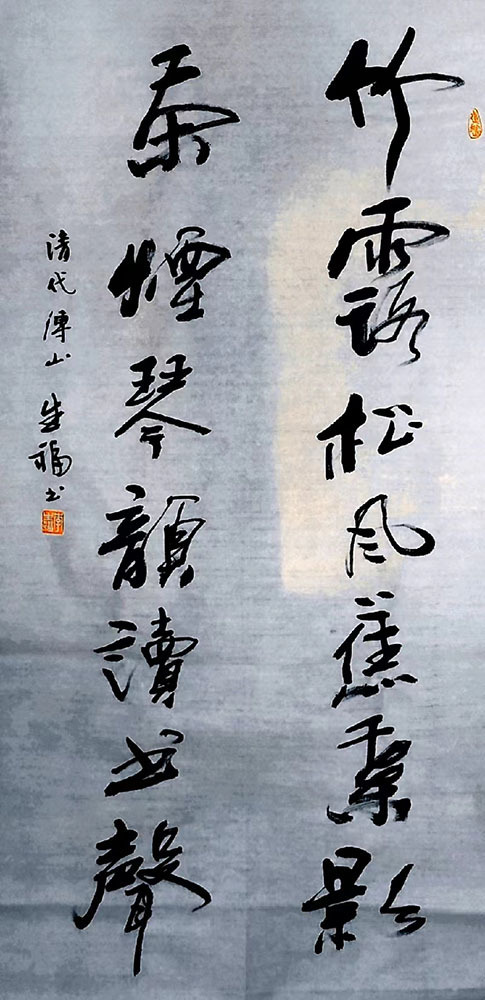 竹露松风蕉葉影
茶煙琴韻讀书聲
清代傅山 生福书